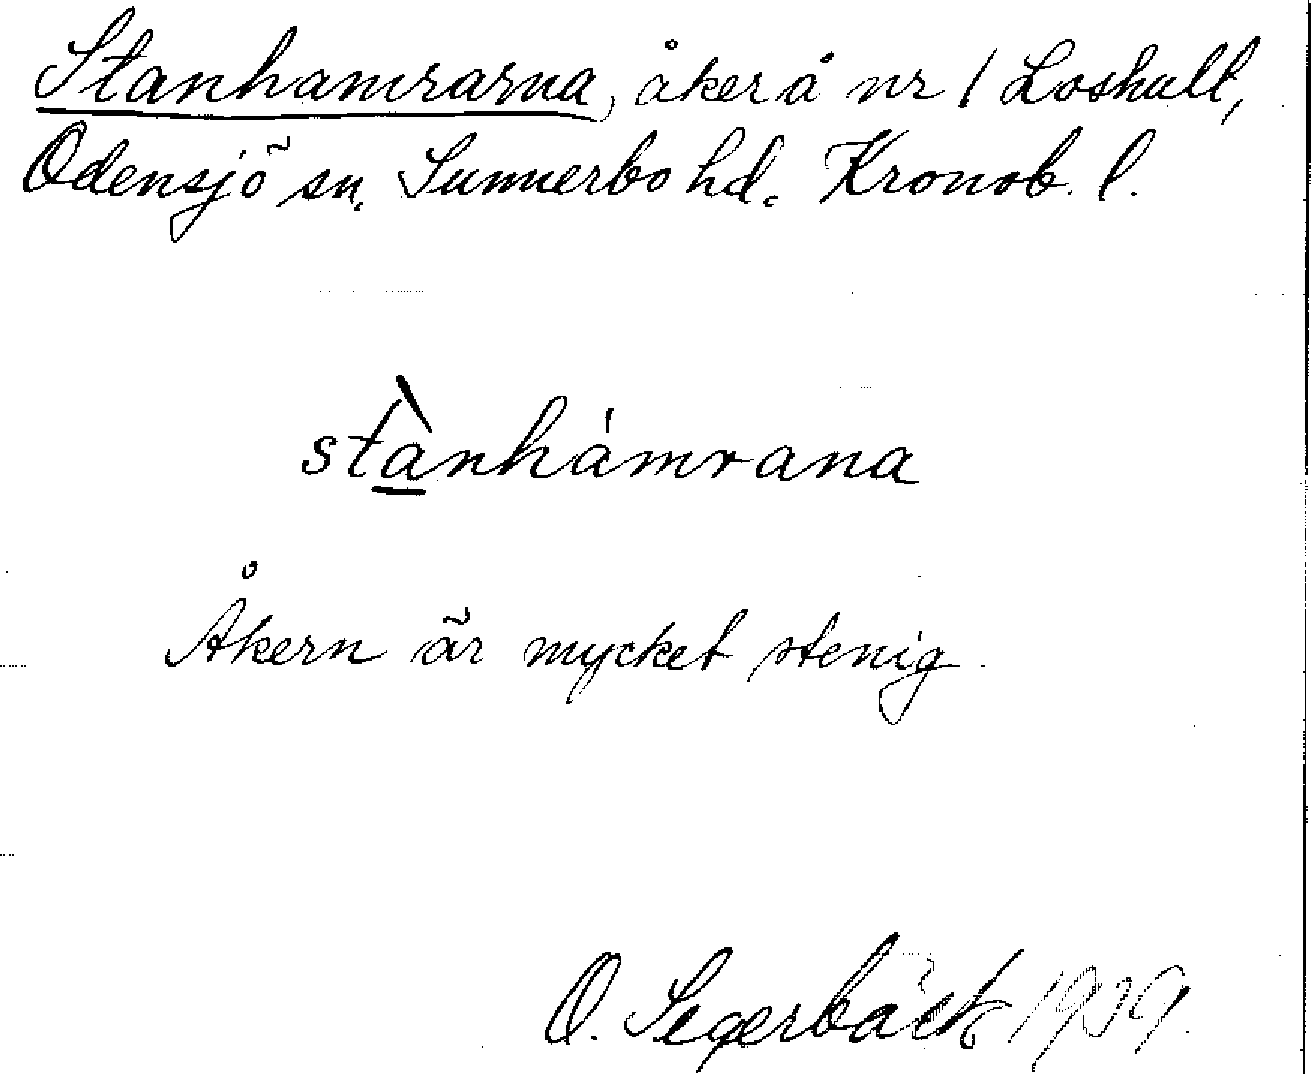 Stanhamrarna, åker å nr 1 Loshult,
Odensjö sn. Sunnerbo hd. Kronob. l.
stànhámrana
Åkern är mycket stenig.
O. Segerbäck 1939.